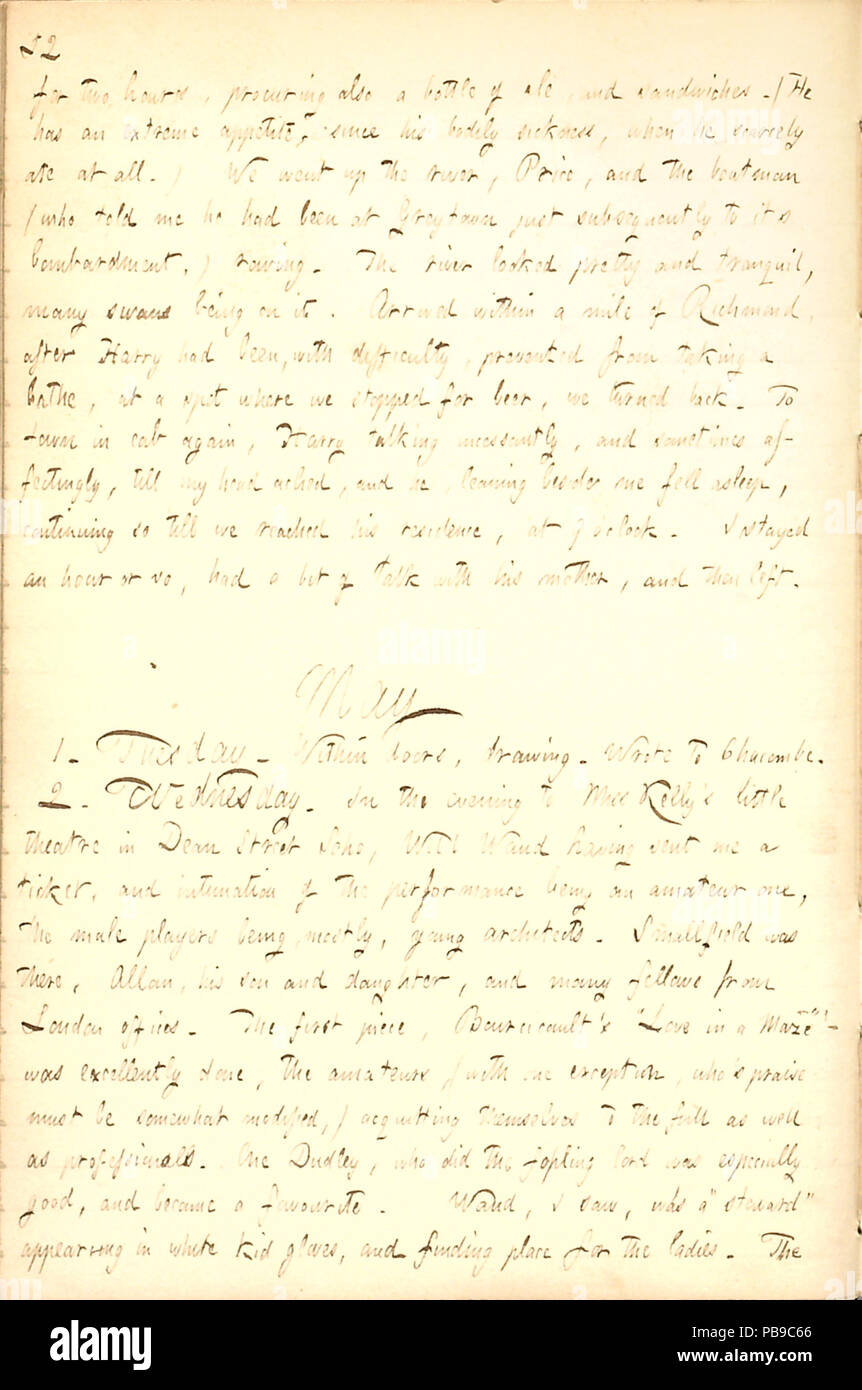 52
for two hours, procuring also a bottle of ale, and sandwiches. (He
has an extreme appetite, since his bodily sickness, when he scarcely
ate at all.) We went up the river, Price, and the boatman
(who told me he had been at Greytown just subsequently to it's
bombardment,) rowing. The river looked pretty and tranquil,
many swans being on it. Arrived within a mile of Richmond,
after Harry had been, with difficulty, prevented from taking a
bathe, at a spot where we stopped for beer, we turned back. To
town in cab again, Harry talking incessantly, and sometimes af-
fectingly, till my head ached, and he, leaning besides me fell asleep,
continuing so till we reached his residence, at 9 o'clock. I stayed
an hour or so, had a bit of talk with his mother, and then left.
May
1. Tuesday. Within doors, drawing. Wrote to Chacombe.
2. Wednesday. In the evening to Miss Kelly's little
theatre in Dean Street Soho, Will Waud having sent me a
ticket, and intimation of the performance being an amateur one,
the male players being, mostly, young architects. Smallfield was
there, Allan, his son and daughter, and many fellows from
London offices. The first piece, Bourcicault's "Love in a Maze"
was excellently done, the amateurs, (with one exception, who's praise
must be somewhat modified,) acquitting themselves to the full as well
as professionals. One Dudley, who did the lord was especially
good, and became a favourite. Waud, I saw, was a "steward"
appearing in white kid gloves, and finding place for the ladies. The
alamy
alamy stock photo
PB9C66
www.alamy.com